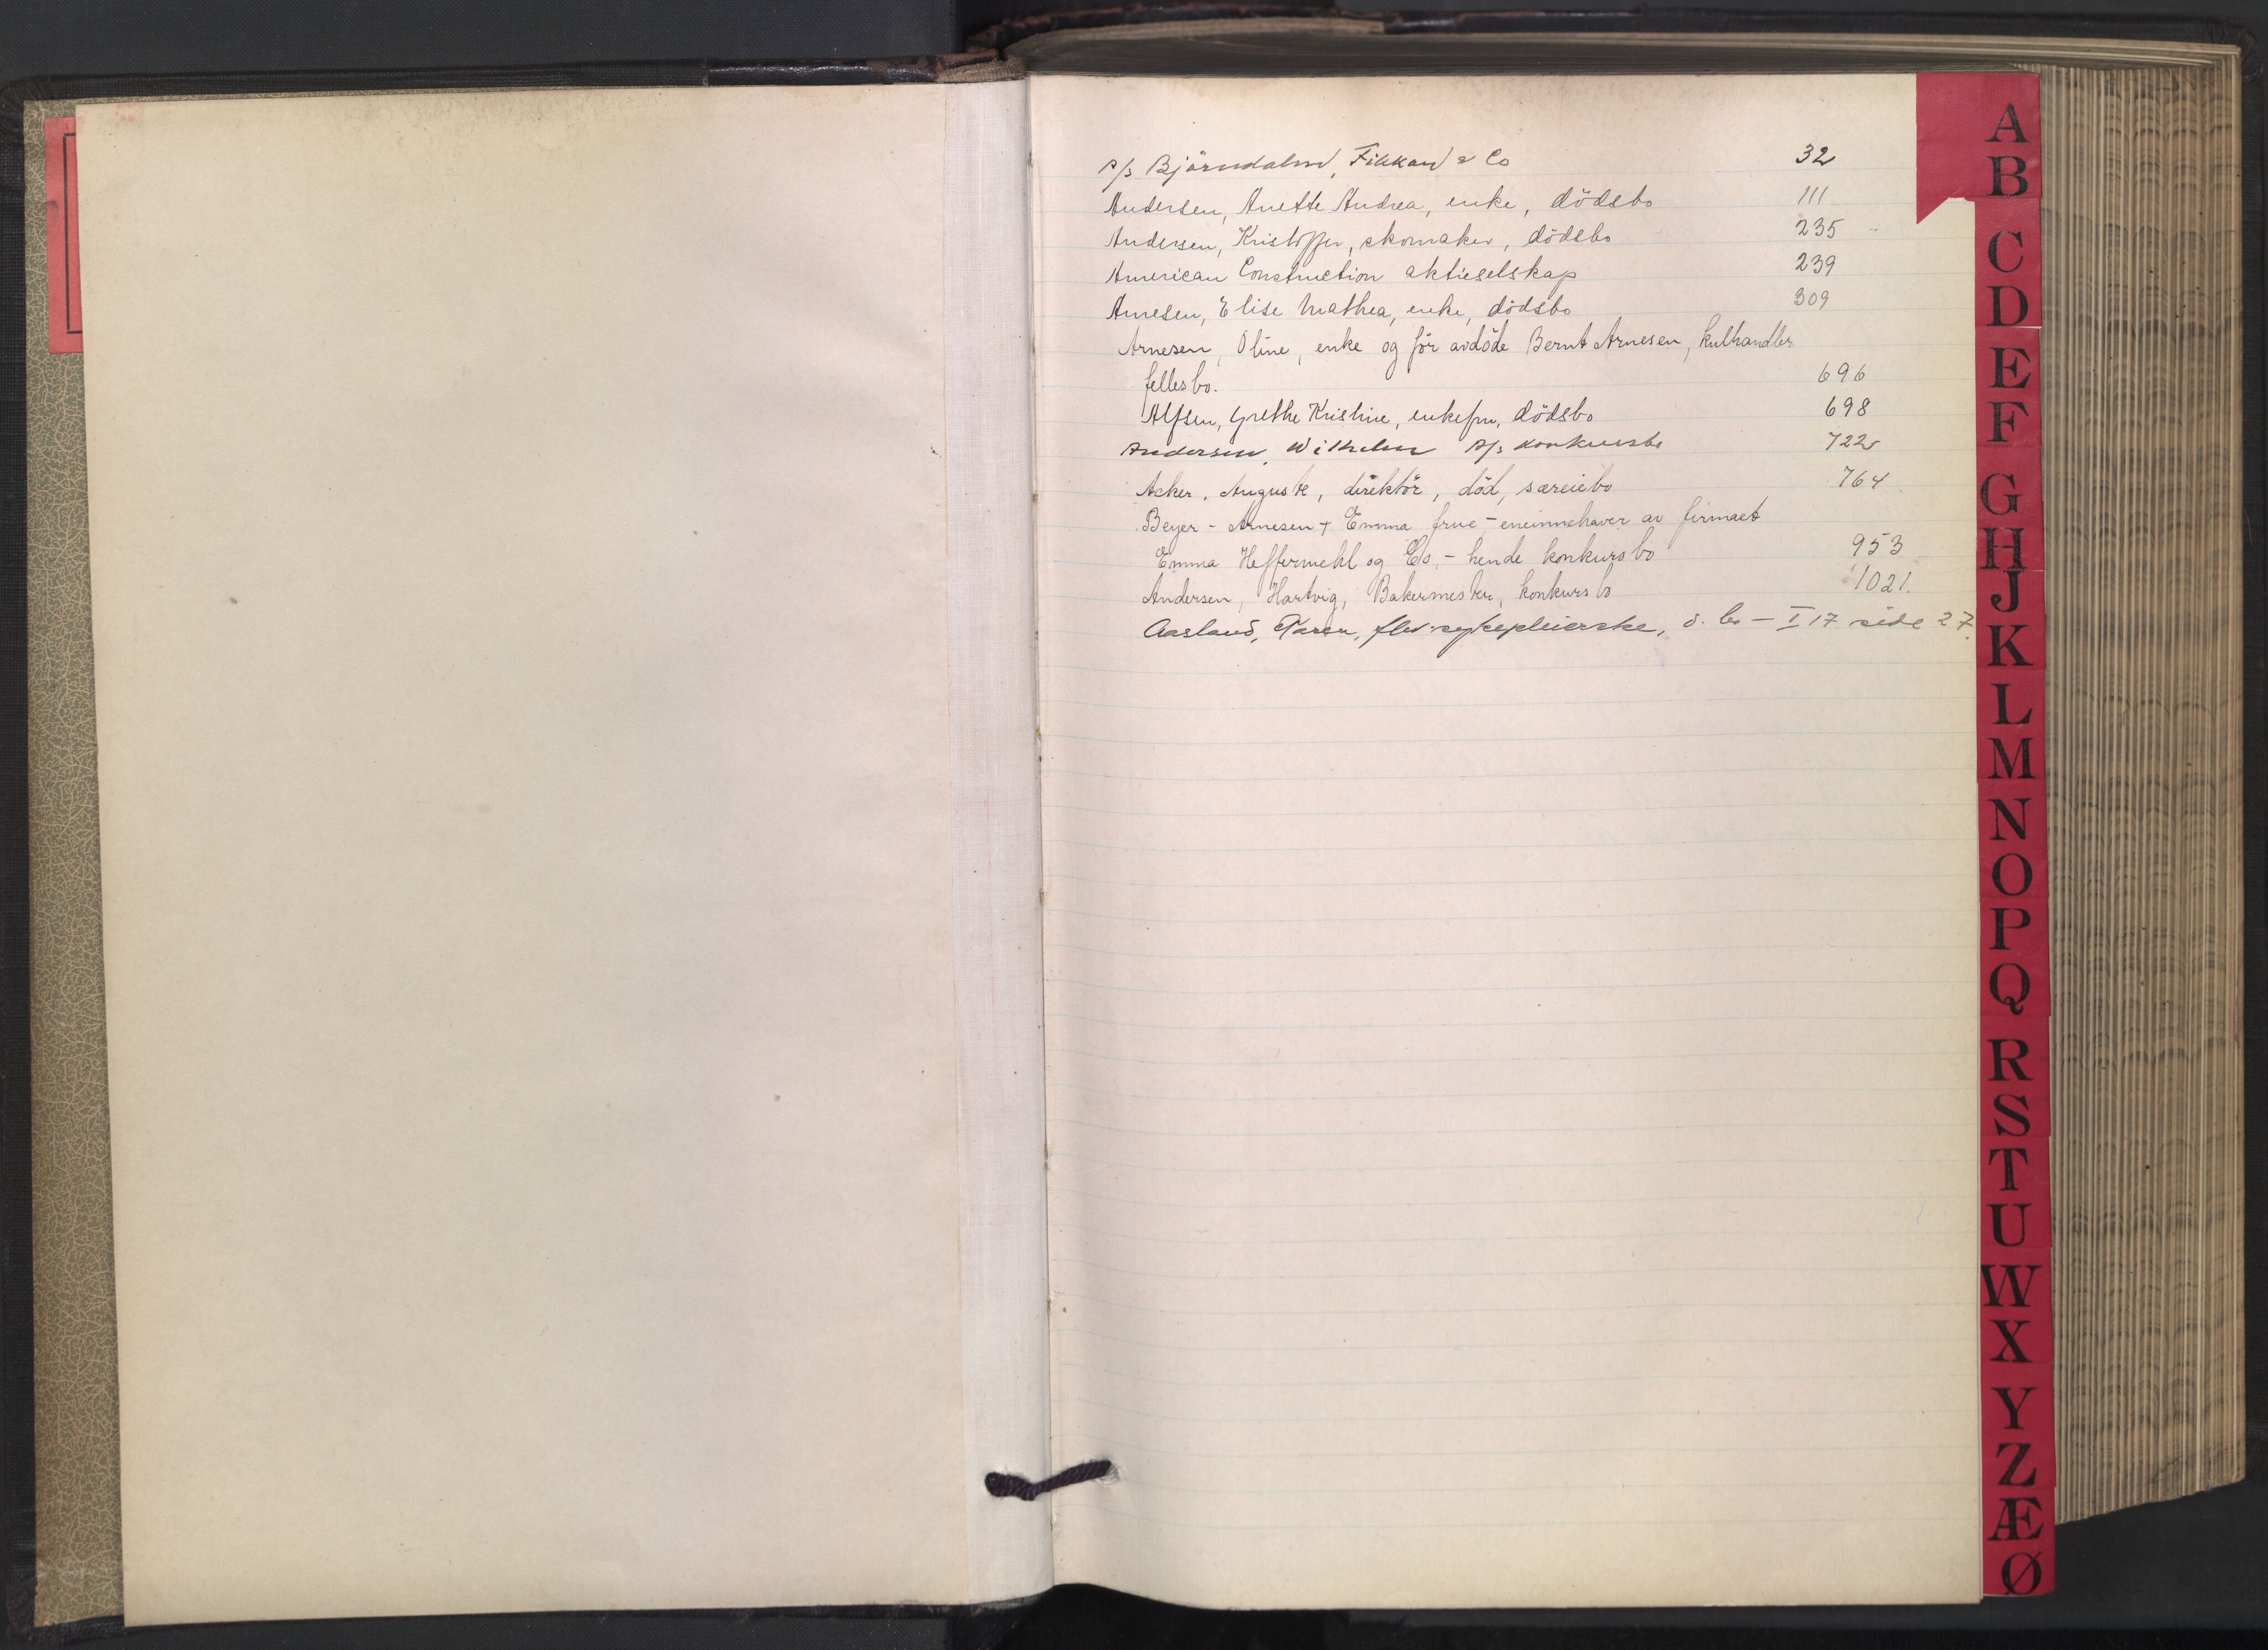 A/s Björndalen, Fikkan & Co 32
Andersen, Anette Andrea, enke, dödsbo 111
Andersen, Kristoffer, skomaker, dödsbo 235
American Construction aktieselskap 239
Arnesen, Elise Mathea, enke, dödsbo 309
Arnesen, Oline, enke og för avdöde Bernt Arnesen, kulhandler
fellesbo. 696
Alfsen, Grethe Kristine, enkefru, dödsbo 698
Andersen, Wilhelm A/s konkursbo 722
Acker, Auguste, direktör, död, særeiebo 764
Beyer - Arnesen, Emma frue - eneinnehaver av firmaet
Emma Heffermehl og Co, - hende konkursbo 953
Andersen, Hartvig, Bakermester, konkursbo 1021.
Aasland, Karen, sykepleierske, d. bo - I 17 side 27.
A
B
C
D
E
F
G
H
J
K
L
M
N
O
P
Q
R
S
T
U
W
X
Y
Z
Æ
Ø